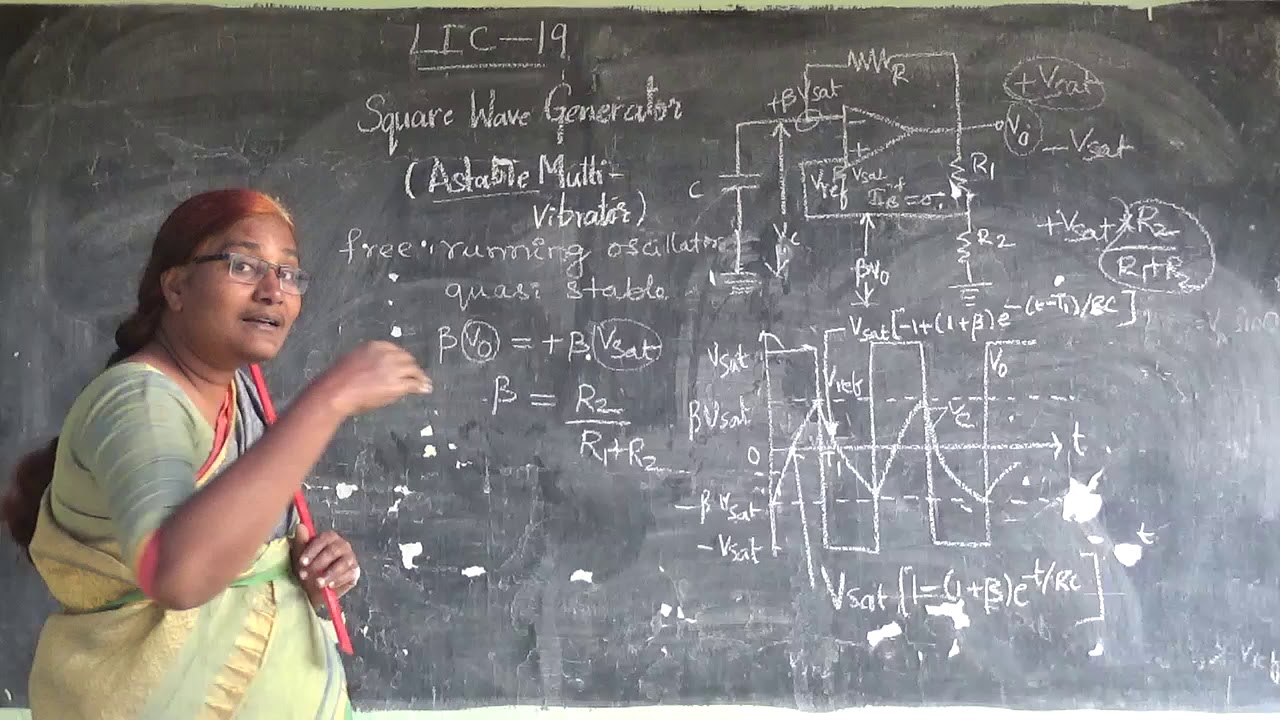 LIC-19
Square Wave Generator
(Astable Multi-
vibrator)
free running oscillator
quasi stable
β V₀ = +β Vsat
β = R₂
R₁+R₂
R
+βVsat
+Vsat
V₀
-Vsat
-
+
C
Vref
Vsat
R₁
Vc
βV₀
R₂
+Vsat × R₂
R₁+R₂
Vsat[-1+(1+β)e^-(t-T₁)/RC]
Vsat
Vref
V₀
βVsat
Vc
0
T₁
t
-βVsat
-Vsat
t
Vsat[1-(1+β)e^-t/RC]